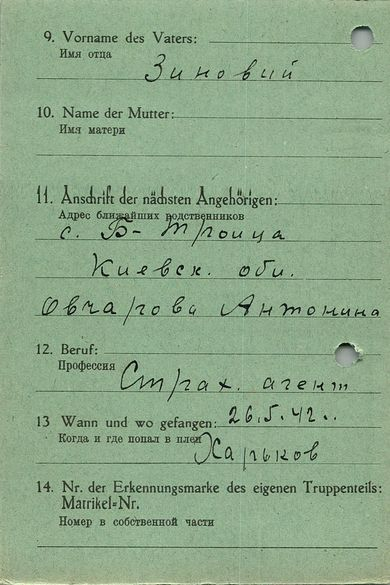 9. Vorname des Vaters:
Имя отца
Зиновий
10. Name der Mutter:
Имя матери
11. Anschrift der nächsten Angehörigen:
Адрес ближайших родственников
с. Б-Троица
Киевск. обл.
Овчарова Антонина
12. Beruf:
Профессия
Страх. агент
13 Wann und wo gefangen: 26.5.42г.
Когда и где попал в плен
Харьков
14. Nr. der Erkennungsmarke des eigenen Truppenteils:
Matrikel=Nr.
Номер в собственной части